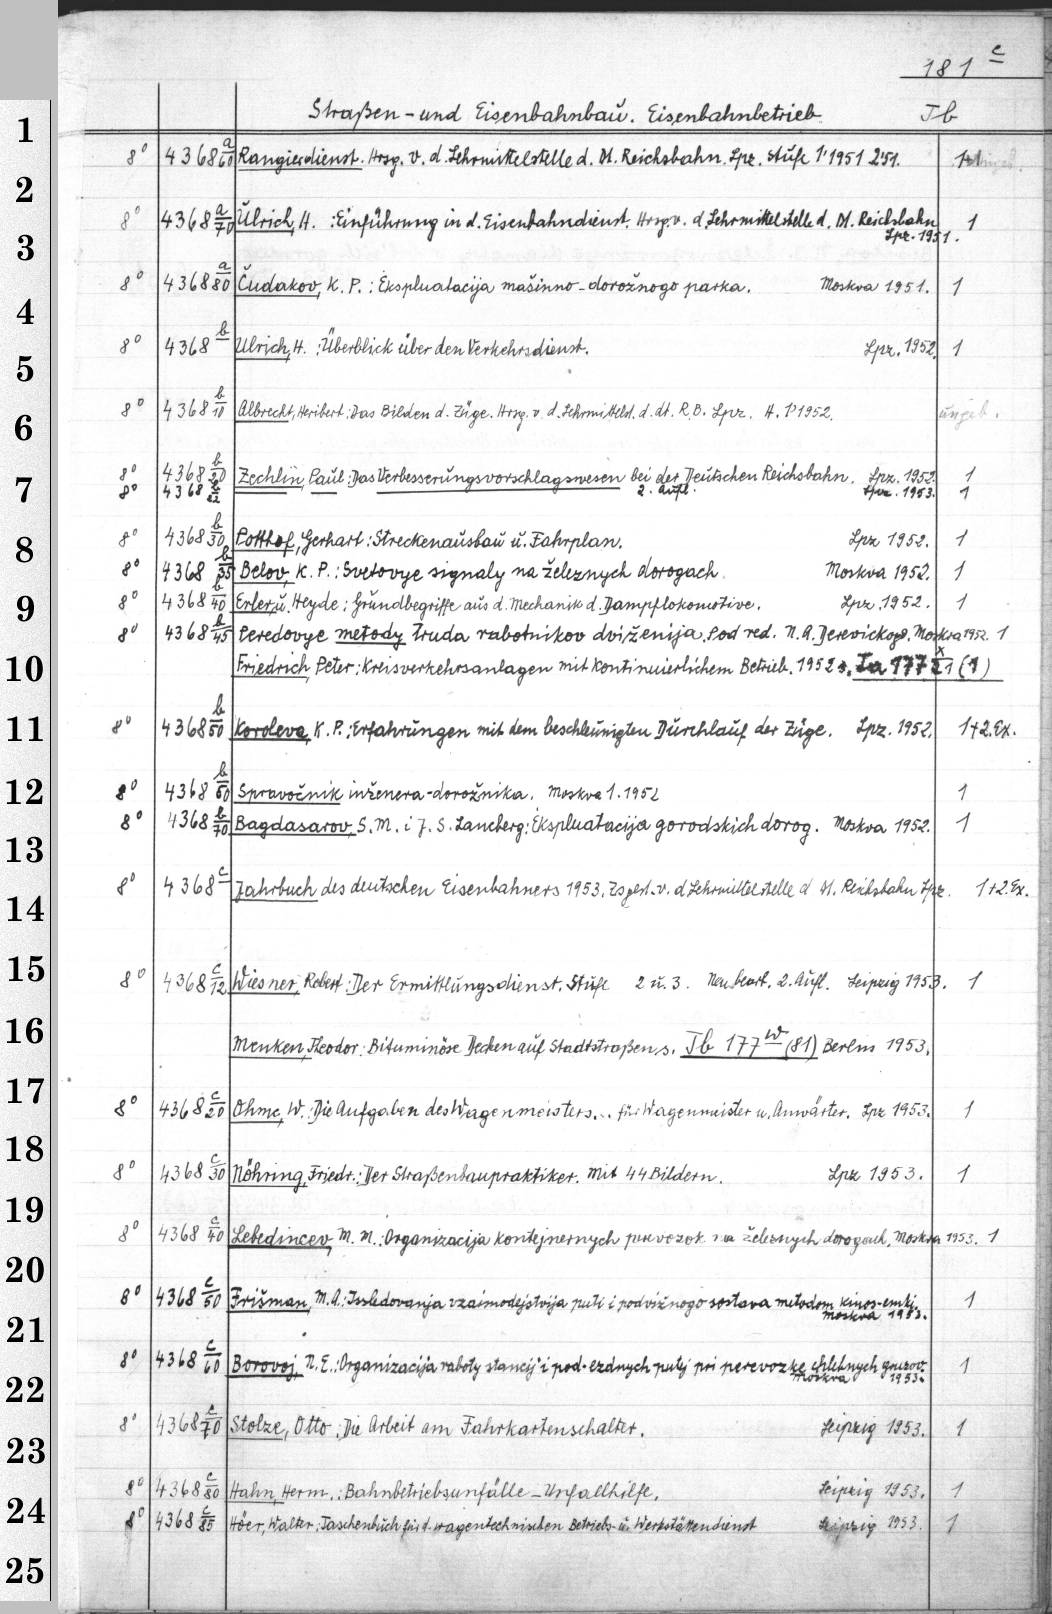 181 c
Straßen- und Eisenbahnbau. Eisenbahnbetrieb. Tb
1
8° 4368 a/60 Rangierdienst. Hrsg. v. d. Lehrmittelstelle d. Dt. Reichsbahn. Lpz. Stufe 1' 1951 2'51.
2
8° 4368 a/70 Ulrich, H. : Einführung in d. Eisenbahndienst. Hrsg. v. d. Lehrmittelstelle d. Dt. Reichsbahn 1
Lpz. 1951.
3
8° 4368 a/80 Čudakov, K. P. : Ekspluatacija mašinno-dorožnogo parka. Moskva 1951. 1
4
8° 4368 b Ulrich, H. : Überblick über den Verkehrsdienst. Lpz. 1952. 1
5
8° 4368 b/10 Albrecht, Heribert : Das Bilden d. Züge. Hrsg. v. d. Lehrmittelst. d. dt. R.B. Lpz. H. 1' 1952. ungeb.
6
8° 4368 b/20 Zechlin, Paul : Das Verbesserungsvorschlagswesen bei der Deutschen Reichsbahn. Lpz. 1952. 1
7
8° 4368 b/22 2. Aufl. Lpz. 1953. 1
8° 4368 b/30 Potthof, Gerhart : Streckenausbau u. Fahrplan. Lpz 1952. 1
8
8° 4368 b/35 Belov, K. P. : Svetovye signaly na železnych dorogach. Moskva 1952. 1
9
8° 4368 b/40 Erler u. Heyde : Grundbegriffe aus d. Mechanik d. Dampflokomotive. Lpz. 1952. 1
8° 4368 b/45 Peredovye metody truda rabotnikov dviženija. Pod red. N. A. Derevickogo. Moskva 1952. 1
10
Friedrich, Peter : Kreisverkehrsanlagen mit kontinuierlichem Betrieb. 1952 s. Ia 177 x/21 (1)
11
8° 4368 b/50 Koroleva, K. P. : Erfahrungen mit dem beschleunigten Durchlauf der Züge. Lpz. 1952. 1+2. Ex.
12
8° 4368 b/60 Spravočnik inženera-dorožnika. Moskva 1. 1952 1
8° 4368 b/70 Bagdasarov, S. M. i J. S. Lancberg : Ekspluatacija gorodskich dorog. Moskva 1952. 1
13
8° 4368 c Jahrbuch des deutschen Eisenbahners 1953. Zsgest. v. d Lehrmittelstelle d Dt. Reichsbahn Lpz. 1+2. Ex.
14
15
8° 4368 c/12 Wiesner, Robert : Der Ermittlungsdienst. Stufe 2 u. 3. Neu bearb. 2. Aufl. Leipzig 1953. 1
16
Menken, Theodor : Bituminöse Decken auf Stadtstraßen s. Tb 177 w (81) Berlin 1953.
17
8° 4368 c/20 Ohme, W. : Die Aufgaben des Wagenmeisters... für Wagenmeister u. Anwärter. Lpz 1953. 1
18
8° 4368 c/30 Nöhring, Friedr. : Der Straßenbaupraktiker. Mit 44 Bildern. Lpz 1953. 1
19
8° 4368 c/40 Lebedincev, M. M. : Organizacija kontejnernych perevozok na železnych dorogach. Moskva 1953. 1
20
8° 4368 c/50 Frišman, M. A. : Issledovanja vzaimodejstvija puti i podvižnogo sostava metodom kinos-emki. 1
Moskva 1953.
21
8° 4368 c/60 Borovoj, N. E. : Organizacija raboty stancij i pod-ezdnych putej pri perevozke chlebnych gruzov. 1
Moskva 1953.
22
8° 4368 c/70 Stolze, Otto : Die Arbeit am Fahrkartenschalter. Leipzig 1953. 1
23
8° 4368 c/80 Hahn, Herm. : Bahnbetriebsunfälle – Unfallhilfe. Leipzig 1953. 1
24
8° 4368 c/85 Höer, Walter : Taschenbuch für d. wagentechnischen Betriebs- u. Werkstättendienst Leipzig 1953. 1
25